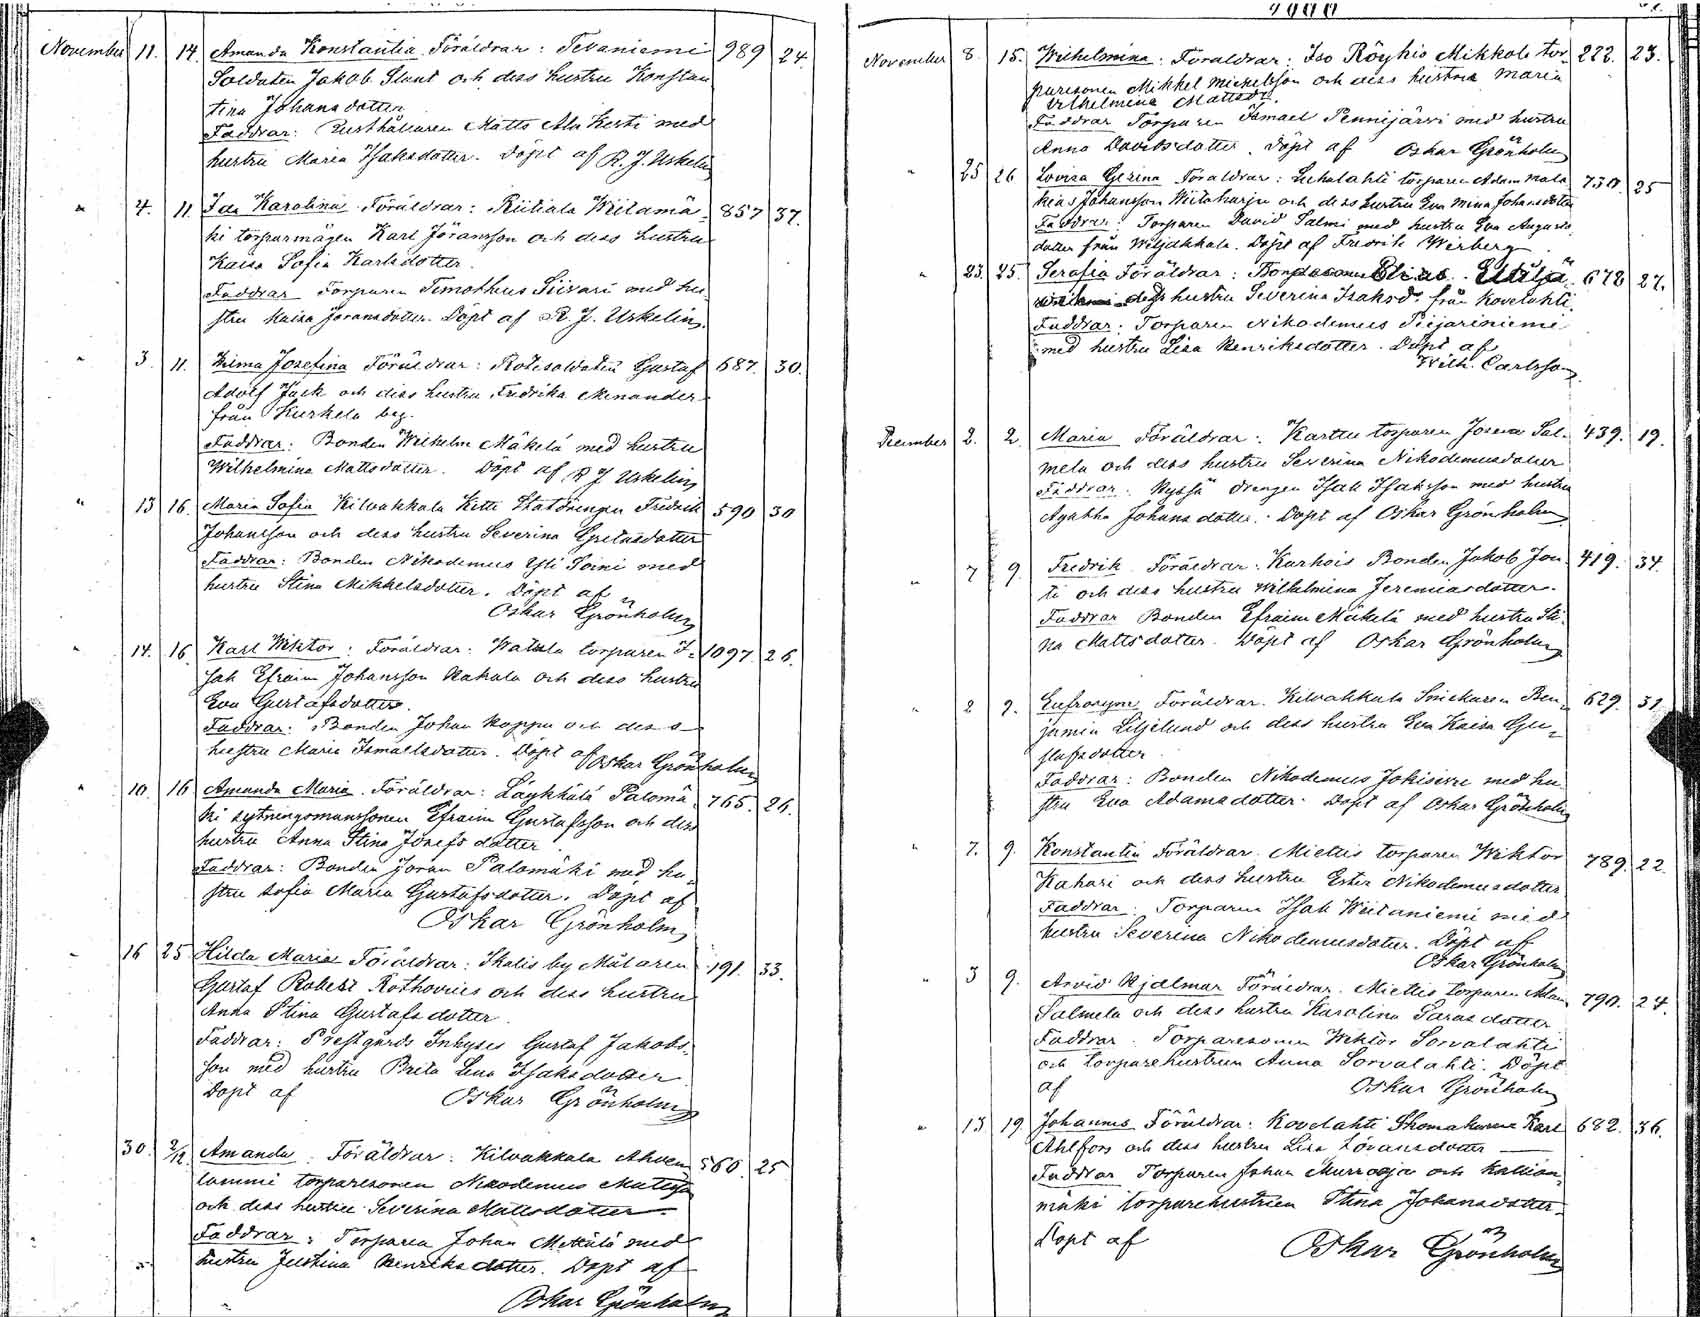 November 11. 14. Amanda Konstantia Föräldrar: Tevaniemi 989 24.
Soldaten Jakob Slunt och dess hustru Konstan
tina Johansdotter
Faddrar: Rusthållaren Matts Ala Kerti med
hustru Maria Isaksdotter. Döpt af R. J. Uskelin
" 4. 11. Ida Karolina Föräldrar: Riitiala Wiitamä- 857 37.
ki torparmågen Karl Jöransson och dess hustru
Kaisa Sofia Karlsdotter
Faddrar Torparen Timotheus Siivari med hu-
stru Kaisa Jöransdotter. Döpt af R. J. Uskelin.
" 3. 11. Josefina Föräldrar: Rotesoldaten Gustaf 687. 30.
Adolf Jack och dess hustru Fredrika Menander
från Kurkela by.
Faddrar: Bonden Wilhelm Mäkelä med hustru
Wilhelmina Mattsdotter. Döpt af R J Uskelin
" 13 16. Maria Sofia Kilvakkala Fredrik 590 30
Johansson och dess hustru Severina
Faddrar: Bonden Nikodemus Yli Soini med
hustru Stina Mikkelsdotter. Döpt af
Oskar Grönholm
" 14. 16. Karl Wiktor: Föräldrar: Watula torparen I- 1097. 26.
sak Efraim Johansson Hakala och dess hustru
Eva Gustafsdotter.
Faddrar: Bonden Johan Koppu och dess
hustru Maria Ismaelsdotter. Döpt af Oskar Grönholm
" 10. 16 Amanda Maria. Föräldrar: Läykkälä Palomä- 765. 26.
ki sytningsmanssonen Efraim Gustafsson och dess
hustru Anna Stina Josefsdotter
Faddrar: Bonden Joran Palomäki med hu-
stru Sofia Maria Gustafsdotter. Döpt af
Oskar Grönholm
" 16 25 Hilda Maria Föräldrar: Skalis by Målaren 191. 33.
Gustaf Robert Rothovius och dess hustru
Anna Stina Gustafsdotter
Faddrar: Prestgårds Inhyses Gustaf Jakobs-
son med hustru Brita Lena Isaksdotter
Döpt af Oskar Grönholm
30. 2/12. Amanda. Föräldrar: Kilvakkala Ahven- 560. 25
lammi torparesonen Nikodemus
och dess hustru Severina Mattsdotter
Faddrar: Torparen Johan Mettälä med
hustru Justina Henriksdotter. Döpt af
Oskar Grönholm
November 8. 15. Wilhelmina: Föräldrar: Iso Röyhiö Mikkola tor- 222. 23.
paresonen Mikkel Mickelsson och dess hustru Maria
Vilhelmina Mattsdr.
Faddrar Torparen Ismael Pennijärvi med hustru
Anna Davidsdotter. Döpt af Oskar Grönholm
" 25 26 Lovisa Gesina Föräldrar: Lehalahti torparen Adam Mala 730. 25
kias Johansson Wiitaharju och dess hustru Eva Mina Johansdotter
Faddrar: Torparen David Salmi med hustru Eva Augusta
dotter från Wiljakkala. Döpt af Fredrik Wirberg
" 23. 25. Serafia Föräldrar: Elias 678 27.
dess hustru Severina Isaksd. från Kovelahti
Faddrar: Torparen Nikodemus Piijariniemi
med hustru Lisa Henriksdotter. Döpt af
Wilh. Carlsson
December 2. 2. Maria Föräldrar: Karttu torparen Josua Sal- 439. 19.
mela och dess hustru Severina Nikodemusdotter
Faddrar. Kyssä drengen Isak Isaksson med hustru
Agatha Johansdotter. Döpt af Oskar Grönholm
" 7 9. Fredrik Föräldrar: Karhois Bonden Jakob Jou- 419. 34.
ti och dess hustru Wilhelmina Jeremiasdotter.
Faddrar Bonden Efraim Mäkelä med hustru Sti-
na Mattsdotter. Döpt af Oskar Grönholm
" 2 9. Eufrosyne Föräldrar. Kilvakkala Snickaren Ben- 629. 31
jamin Liljelund och dess hustru Eva Kaisa Gu-
stafsdotter
Faddrar: Bonden Nikodemus Jokisivu med hu-
stru Eva Adamsdotter. Döpt af Oskar Grönholm
" 7. 9. Konstantin Föräldrar. Miettis torparen Wiktor 789. 22.
Kahari och dess hustru Ester Nikodemusdotter
Faddrar. Torparen Isak Wiitaniemi med
hustru Severina Nikodemusdotter. Döpt af
Oskar Grönholm
" 3 9. Arvid Hjalmar Föräldrar. Miettis torparen Adam 790. 24.
Salmela och dess hustru Karolina Sarasdotter
Faddrar. Torparesonen Wiktor Sorvalahti
och torparehustrun Anna Sorvalahti. Döpt
af Oskar Grönholm
" 13 19. Johannes Föräldrar: Kovelahti Skomakaren Karl 682. 36.
Ahlfors och dess hustru Lisa Jöransdotter
Faddrar Torparen Johan Murrooja och Kallion-
mäki torparehustrun Stina Johansdotter.
Döpt af Oskar Grönholm